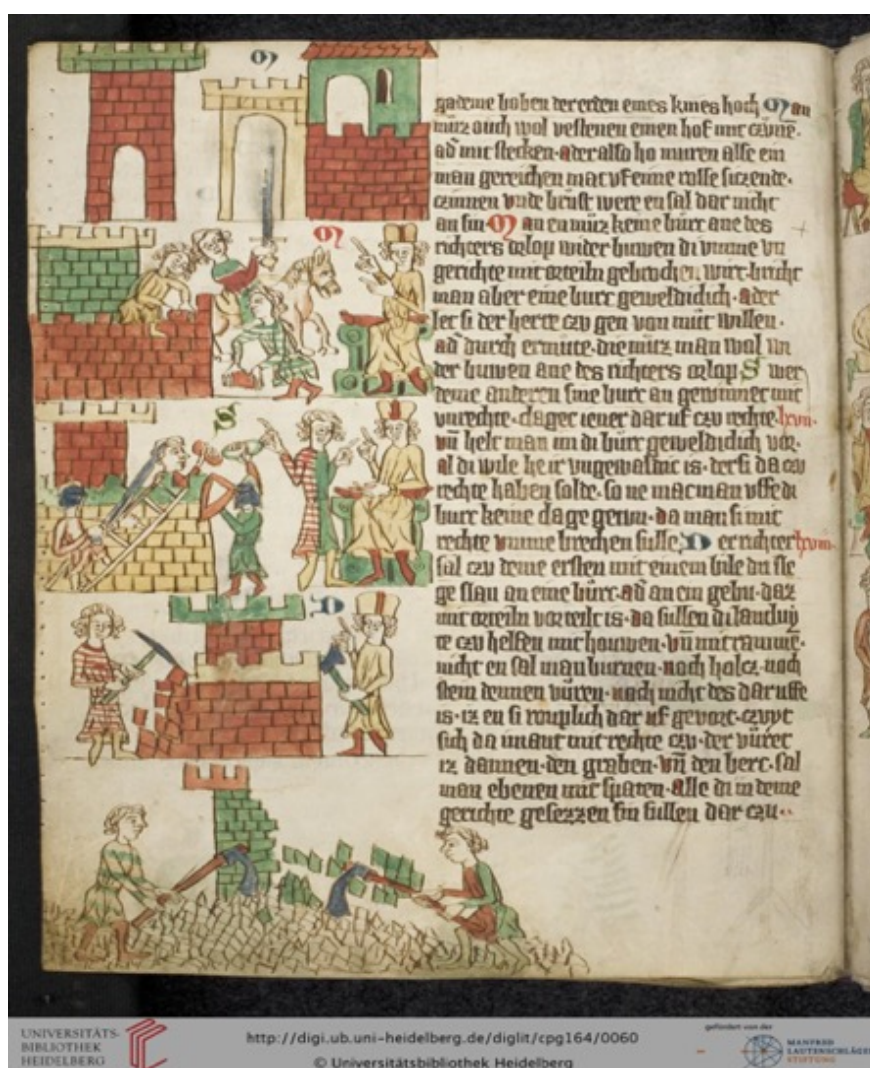 gademe boben der erden eines knies hoch Man
muz ouch wol vestenen einen hof mit czune.
ad mit stecken. ader also ho muren alse ein
man gereichen mac uf eime rosse siczende.
czinnen unde brust were en sal dar nicht
an sin. Man en muz keine burc ane des
richters orlop wider buwen di umme un
gerichte mit orteiln gebrochen wirt. bricht
man aber eine burc geweldiclich. ader
let si der herre czu gen von mut willen.
ad durch ermute. die muz man wol wi
der buwen ane des richters orlop. S wer
deme anderen sine burc an gewinnet mit
unrechte. claget iener dar uf czu rechte. lxvii.
un helt man im di burc geweldiclich vor.
al di wile he ir ungewaldic is. der si da czu
rechte haben solde. so ne mac man uffe di
burc keine clage getun. da man si mit
rechte umme brechen sulle. D er richter lxviii.
sal czu deme ersten mit eime bile dri sle
ge slan an eine burc. ad an ein gebu. daz
mit orteiln vorteilt is. da sullen di lantluy
te czu helfen mit houwen. un mit rammē.
nicht en sal man burnen. noch holcz noch
stein dennen vuren. noch nicht des dar uffe
is. iz en si rouplich dar uf gevort. czuyt
sich da imant mit rechte czu. der vuret
iz dannen. den graben. un den berc. sal
man ebenen mit spaten. alle di in deme
gerichte gesezzen sin sullen dar czu..
M
M
S
D
UNIVERSITÄTS-
BIBLIOTHEK
HEIDELBERG
http://digi.ub.uni-heidelberg.de/diglit/cpg164/0060
© Universitätsbibliothek Heidelberg
gefördert von der
MANFRED
LAUTENSCHLÄGER
STIFTUNG